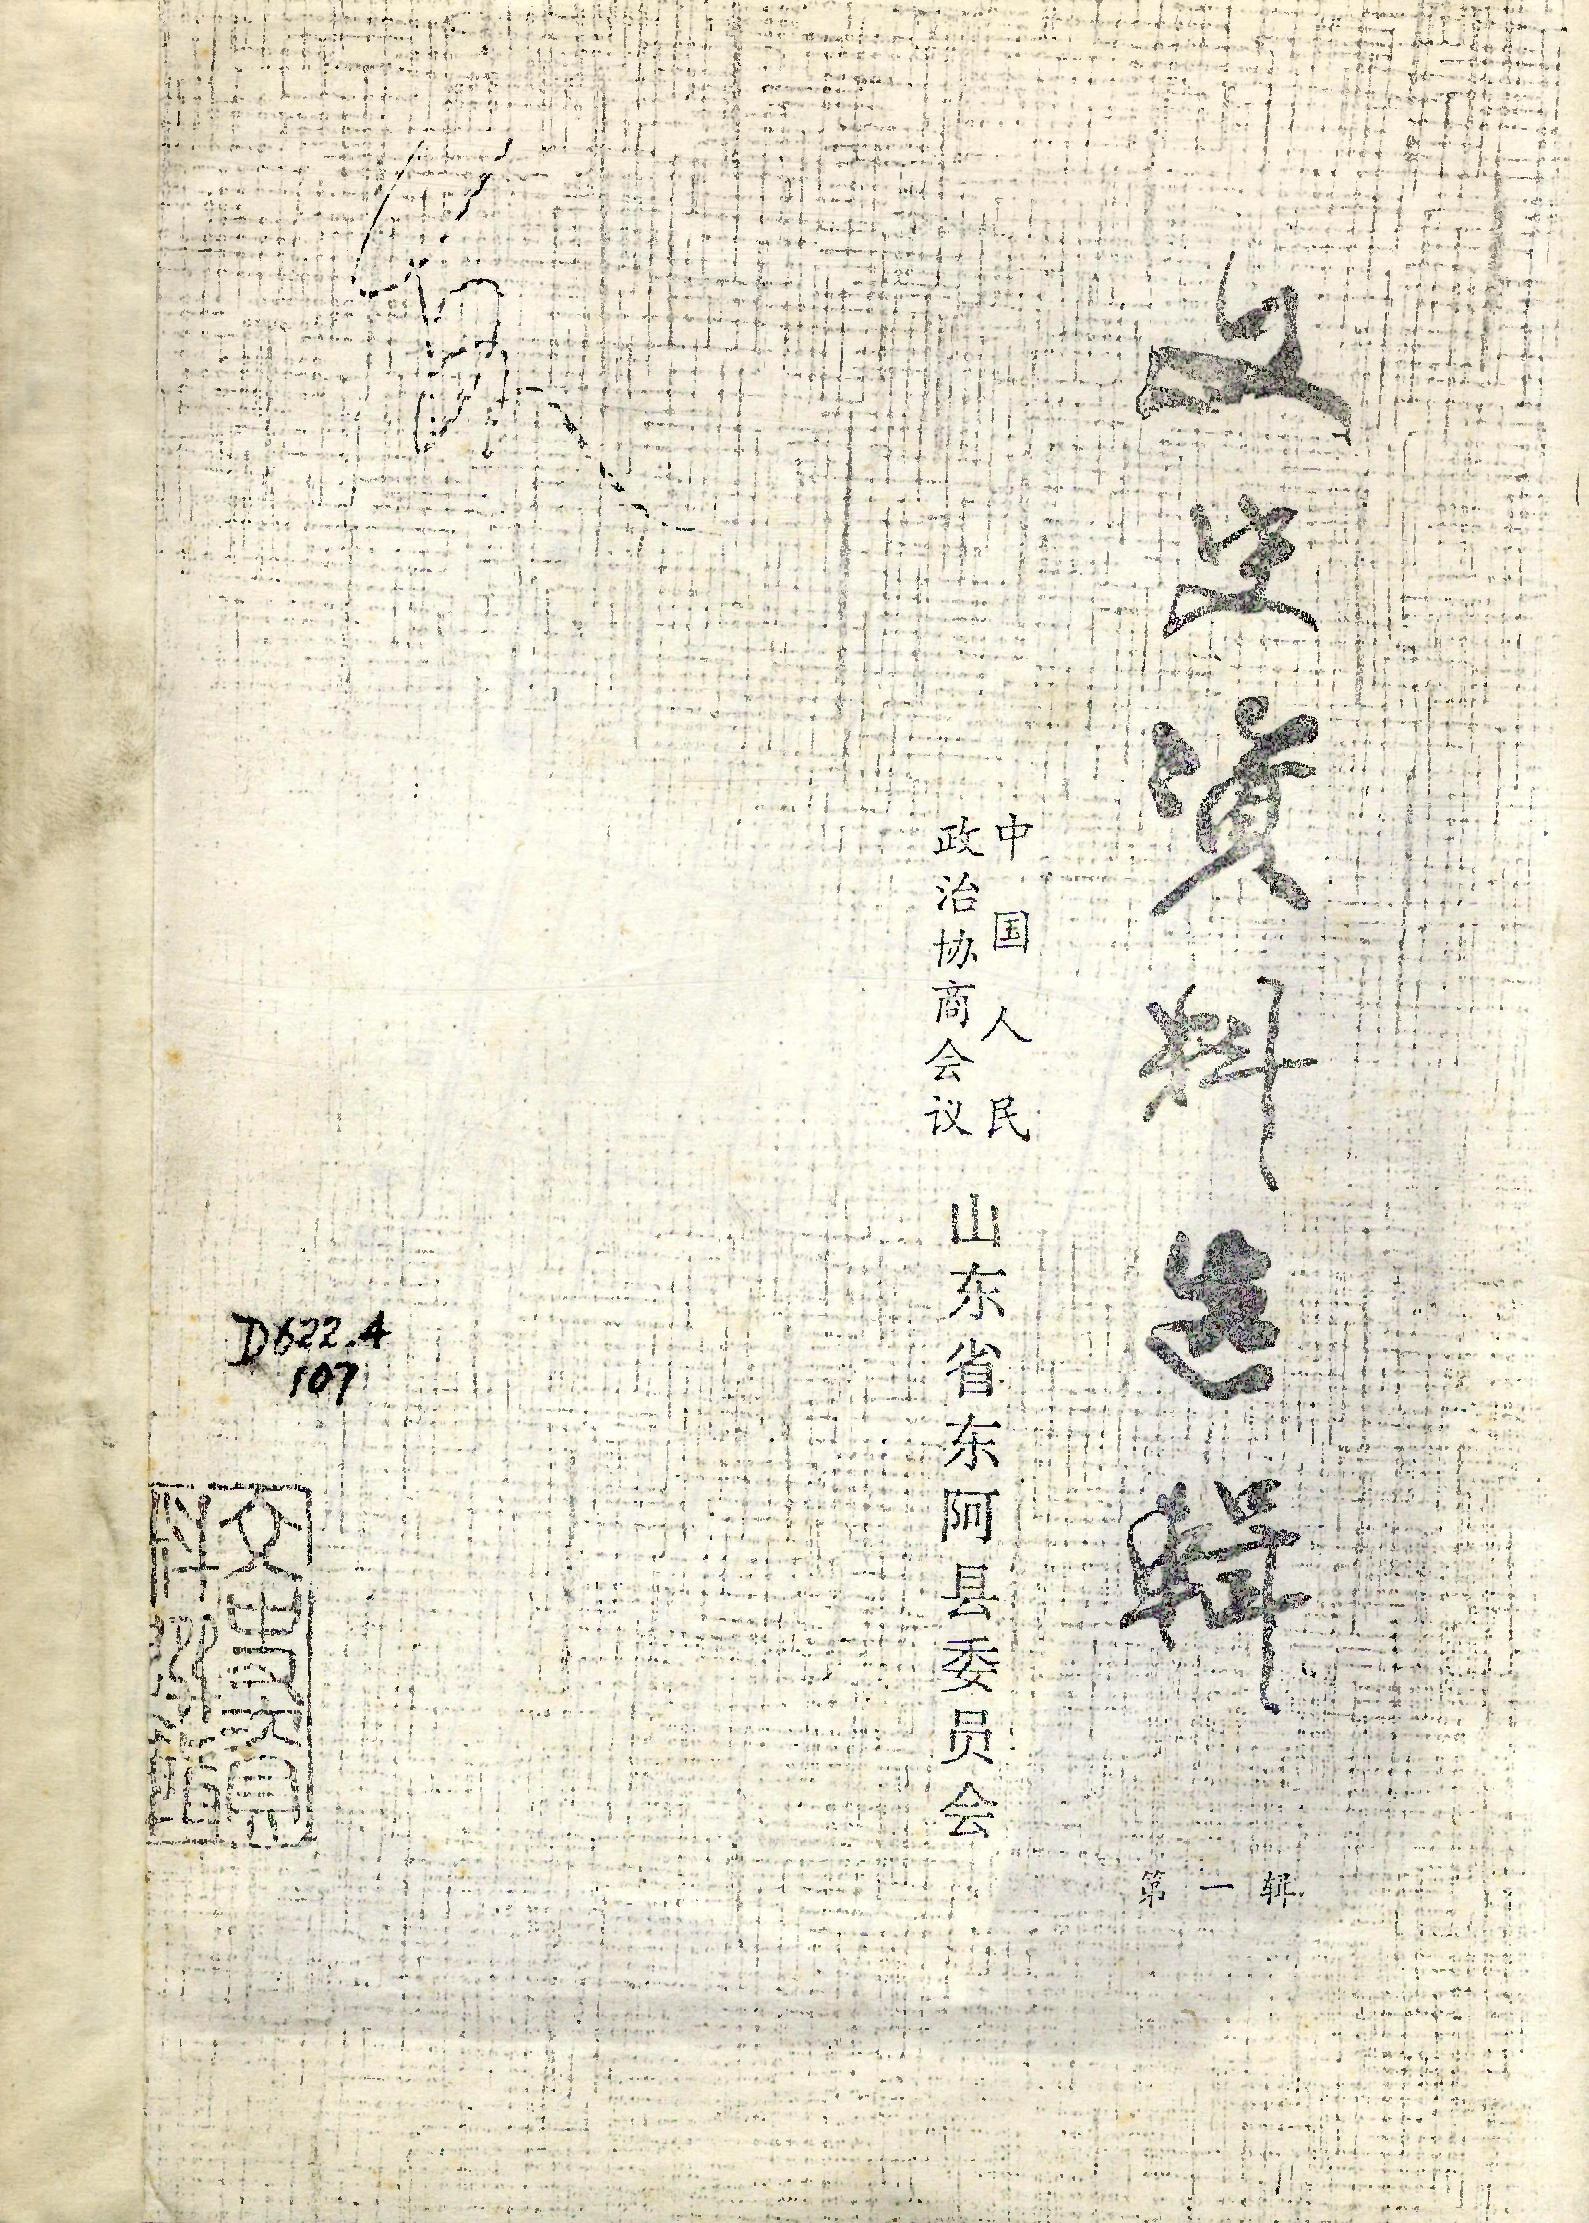 文史资料选辑
第一辑
中国人民
政治协商会议
山东省东阿县委员会
D622.4
107